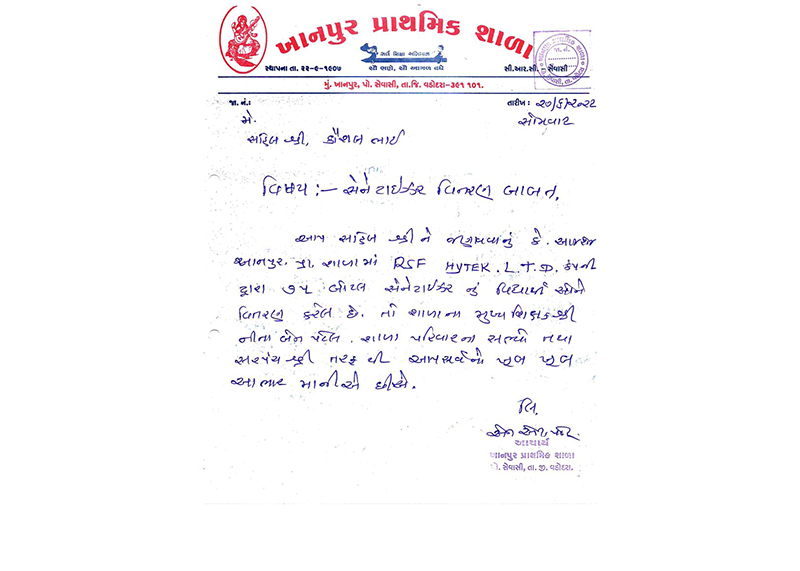 ખાનપુર પ્રાથમિક શાળા
સર્વ શિક્ષા અભિયાન
સૌ ભણે, સૌ આગળ વધે
સ્થાપના તા. ૨૨-૯-૧૯૦૭
સી.આર.સી. સેવાસી
મું. ખાનપુર, પો. સેવાસી, તા.જિ. વડોદરા-૩૯૧ ૧૦૧.
જા. નં.:
તારીખ: ૨૦/૬/૨૦૨૨
સોમવાર
મે.
સાહેબ શ્રી, કૌશલ ભાઈ
વિષય :- સેનેટાઈઝર વિતરણ બાબત.
આપ સાહેબ શ્રી ને જણાવવાનું કે. આજરોજ
ખાનપુર. પ્રા. શાળામાં RSF HYTEK. L.T.D. કંપની
દ્વારા ૭૫ બોટલ સેનેટાઈઝર નું વિદ્યાર્થી ઓને
વિતરણ કરેલ છે. તો શાળાના મુખ્ય શિક્ષક શ્રી
નીતા બેન પટેલ. શાળા પરિવારના સભ્યો તથા
સરપંચ શ્રી તરફ થી આપ સર્વેનો ખૂબ ખૂબ
આભાર માનીએ છીએ.
લિ.
આચાર્ય
ખાનપુર પ્રાથમિક શાળા
પો. સેવાસી, તા. જી. વડોદરા.